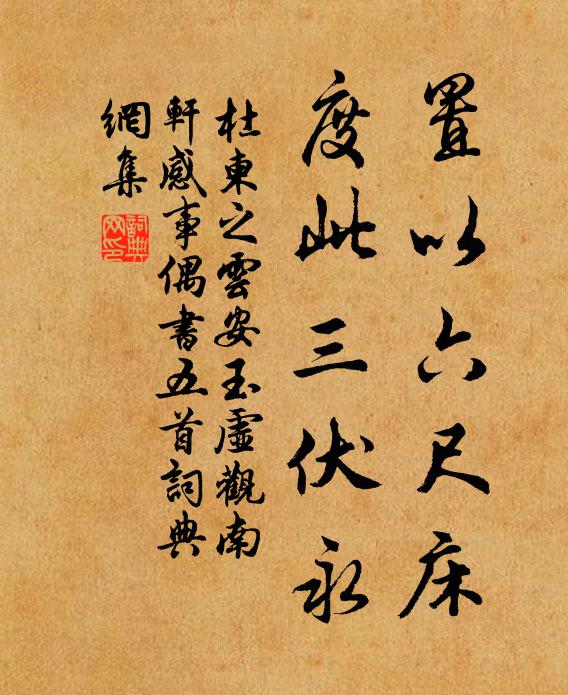 置以六尺床
度此三伏永
杜東之雲安玉虛觀南
軒感事偶書五首詞典
網集
詞典
网印